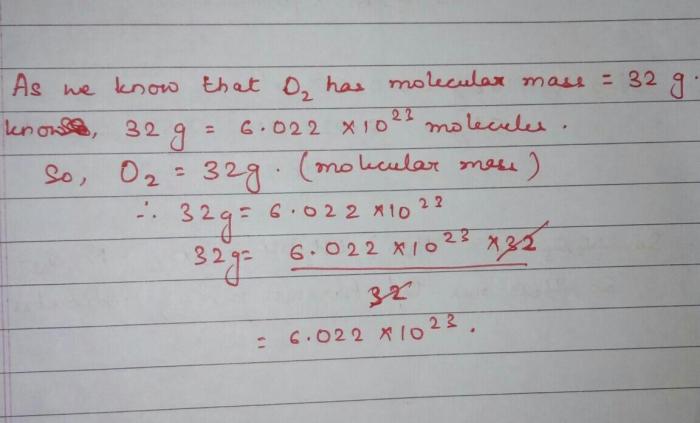 As we know that O₂ has molecular mass = 32 g.
know, 32 g = 6.022 ×10²³ molecules.
So, O₂ = 32g. (molecular mass)
∴ 32g = 6.022 ×10²³
32g = 6.022 ×10²³ ×32
32
= 6.022 ×10²³.